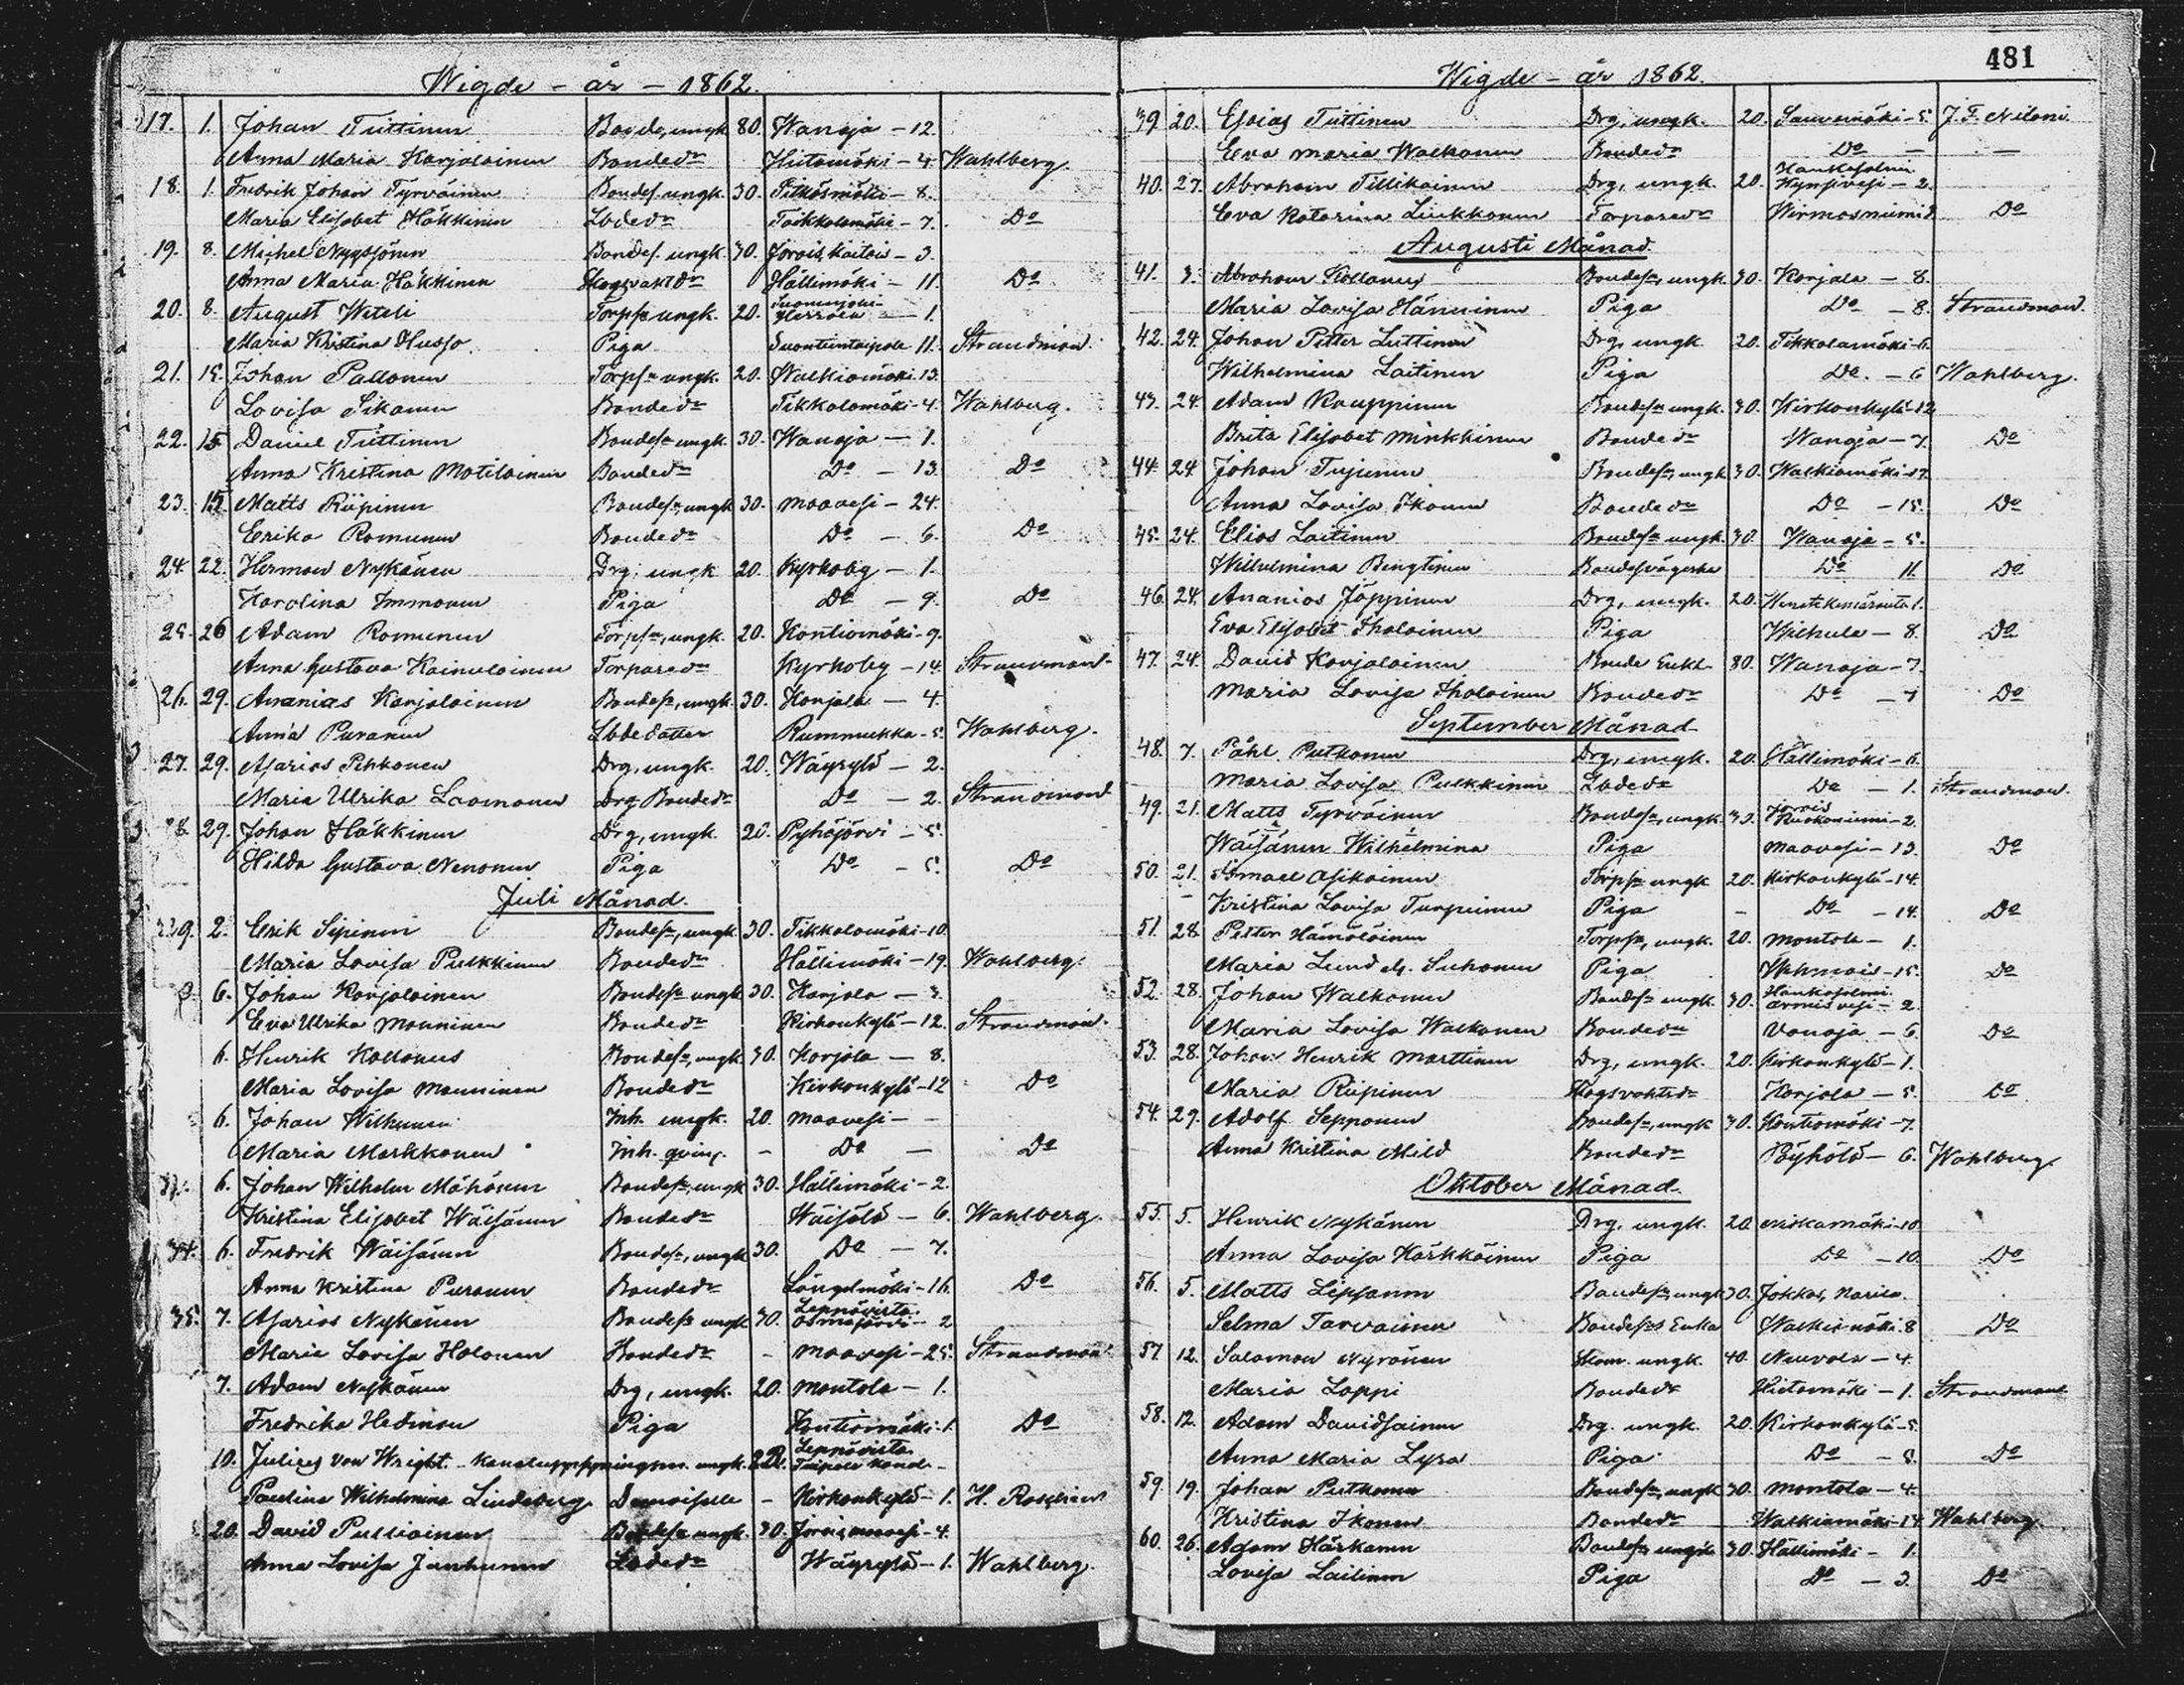 Wigde - år - 1862.
17. 1. Johan Tiittinen Bonde, ungk. 80. Wanaja - 12.
Anna Maria Karjalainen Bondedr Hietamäki - 4. Wahlberg.
18. 1. Fredrik Johan Tyrväinen Bondes. ungk. 30. Pitkäsmäki - 8.
Maria Elisabet Häkkinen Lbdedr Tikkalamäki - 7. Do
19. 8. Michel Nyyssönen Bondes. ungk. 30. Jorois, Kaitais - 3.
Anna Maria Häkkinen Skogsvaktdr Hällimäki - 11. Do
20. 8. August Witeli Torpsn ungk. 20. Suonenjoki - 1.
Maria Kristina Husso Piga Suontientaipale 11. Strandman.
21. 15. Johan Pallonen Torpsn ungk. 20. Walkiamäki 13.
Lovisa Sikanen Bondedr Tikkalamäki - 4. Wahlberg.
22. 15. Daniel Tiittinen Bondesn ungk. 30. Wanaja - 1.
Anna Kristina Matilainen Bondedr Do - 13. Do
23. 15. Matts Riipinen Bondesn ungk 30. Maavesi - 24.
Erika Romunen Bondedr Do - 6. Do
24. 22. Herman Nykänen Drg. ungk 20. Kyrkoby - 1.
Karolina Immonen Piga Do - 9. Do
25. 26 Adam Romunen Torpsn, ungk. 20. Kontiomäki - 9.
Anna Gustava Kainulainen Torparedr Kyrkoby - 14. Strandman.
26. 29. Ananias Karjalainen Bondesn, ungk. 30. Karjala - 4.
Anna Puranen Lbdedotter Rummukka - 5. Wahlberg.
27. 29. Asarias Pekkonen Drg, ungk. 20. Wäyrylä - 2.
Maria Ulrika Laamanen Drg Bondedr Do - 2. Strandman
28. 29. Johan Häkkinen Drg, ungk. 20. Pyhäjärvi - 5.
Hilda Gustava Nenonen Piga Do - 5. Do
Juli Månad.
29. 2. Erik Sipinen Bondesn, ungk 30. Tikkalamäki - 10.
Maria Lovisa Pulkkinen Bondedr Hällimäki - 19. Wahlberg.
6. Johan Karjalainen Bondesn ungk 30. Karjala - 3.
Eva Ulrika Manninen Bondedr Kirkonkylä - 12. Strandman.
6. Henrik Kollanus Bondesn, ungk 30. Karjala - 8.
Maria Lovisa Manninen Bondedr Kirkonkylä - 12 Do
6. Johan Wilkunen Inh. ungk. 20. Maavesi -
Maria Markkanen Inh. qving. - Do - Do
6. Johan Wilhelm Mähönen Bondesn, ungk 30. Hällimäki - 2.
Kristina Elisabet Wäisänen Bondedr Wäisälä - 6. Wahlberg.
34. 6. Fredrik Wäisänen Bondesn, ungk 30. Do - 7.
Anna Kristina Puranen Bondedr Längelmäki - 16. Do
35. 7. Asarias Nykänen Bondesn ungk 30. Leppävirta Osmajärvi - 2
Maria Lovisa Holonen Bondedr - Maavesi - 25. Strandman
7. Adam Nykänen Drg, ungk. 20. Montola - 1.
Fredrika Hedman Piga Kontiomäki - 1. Do
10. Julius von Wright - Kanaluppsyningsm. ungk. Leppävirta Taipale kanal -
Paulina Wilhelmina Lindeberg Demoiselle - Kirkonkylä - 1. H. Roschier
20. David Pulliainen Bondesn ungk. 30. Jorois, Maavesi - 4.
Anna Lovisa Janhunen Lbdedr Wäyrylä - 1. Wahlberg.
481
Wigde - år 1862.
39. 20. Esaias Tiittinen Drg, ungk. 20. Sauvumäki - 5. J. F. Niloni
Eva Maria Walkonen Bondedr Do - -
40. 27. Abraham Tillikainen Drg, ungk. 20. Hankasalmi Kynsivesi - 2.
Eva Katarina Liukkonen Torparedr Wirmasniemi 2 Do
Augusti Månad.
41. 3. Abraham Kollanus Bondesn, ungk 30. Karjala - 8.
Maria Lovisa Hänninen Piga Do - 8. Strandman.
42. 24. Johan Petter Luttinen Drg, ungk 20. Tikkalamäki - 6.
Wilhelmina Laitinen Piga Do. - 6 Wahlberg.
43. 24. Adam Kauppinen Bondesn ungk. 30. Kirkonkylä - 12
Brita Elisabet Minkkinen Bondedr Wanaja - 7. Do
44. 24 Johan Tujunen Bondesn, ungk 30. Walkiamäki - 17.
Anna Lovisa Ikonen Bondedr Do - 15. Do
45. 24. Elias Laitinen Bondesn ungk. 30. Wanaja - 5.
Wilhelmina Bengtinen Bondesvägerska Do 11. Do
46. 24. Ananias Jäppinen Drg, ungk. 20. 1.
Eva Elisabet Iholainen Piga Wilhula - 8. Do
47. 24. David Karjalainen Bonde Enkl. 80. Wanaja - 7.
Maria Lovisa Iholainen Bondedr Do - 7 Do
September Månad
48. 7. Påhl Putkonen Drg, ungk. 20. Hällimäki - 6.
Maria Lovisa Pulkkinen Lbdedr Do - 1. Strandman.
49. 21. Matts Tyrväinen Bondesn, ungk. 30. Jorois Ruokoniemi - 2.
Wäisänen Wilhelmina Piga Maavesi - 13. Do
50. 21. Ismael Asikainen Torpsn ungk 20. Kirkonkylä - 14.
Kristina Lovisa Turpeinen Piga - Do - 14. Do
51. 28. Petter Hämäläinen Torpsn, ungk. 20. Montola - 1.
Maria Suhonen Piga - 15. Do
52. 28. Johan Walkonen Bondesn ungk. 30. Hankasalmi Armisvesi - 2.
Maria Lovisa Walkonen Bondedr Vanaja - 6 Do
53. 28. Johan Henrik Marttinen Drg, ungk. 20. Kirkonkylä - 1.
Maria Riipinen Skogsvaktdr Karjala - 5. Do
54. 29. Adolf Sepponen Bondesn, ungk 30. Kontiomäki - 7.
Anna Kristina Mild Bondedr Pöyhölä - 6. Wahlberg.
Oktober Månad.
55. 5. Henrik Nykänen Drg. ungk. 20. Niskamäki - 10
Anna Lovisa Kärkkäinen Piga Do - 10. Do
56. 5. Matts Lipsanen Bondesn, ungk 30. Jokkas, Narila.
Selma Tarvainen Bondesns Enka Walkiamäki 8 Do
57. 12. Salomon Nyrönen ungk. 40. Neuvola - 4.
Maria Loppi Bondedr Hietamäki - 1. Strandman
58. 12. Adam Davidsainen Drg. ungk. 20. Kirkonkylä - 5.
Anna Maria Lyra Piga Do - 5. Do
59. 19. Johan Putkonen Bondesn, ungk 30. Montola - 4.
Kristina Ikonen Bondedr Walkiamäki - 14. Wahlberg.
60. 26. Adam Härkänen Bondesn ungk 30. Hällimäki - 1.
Lovisa Laitinen Piga Do - 3. Do